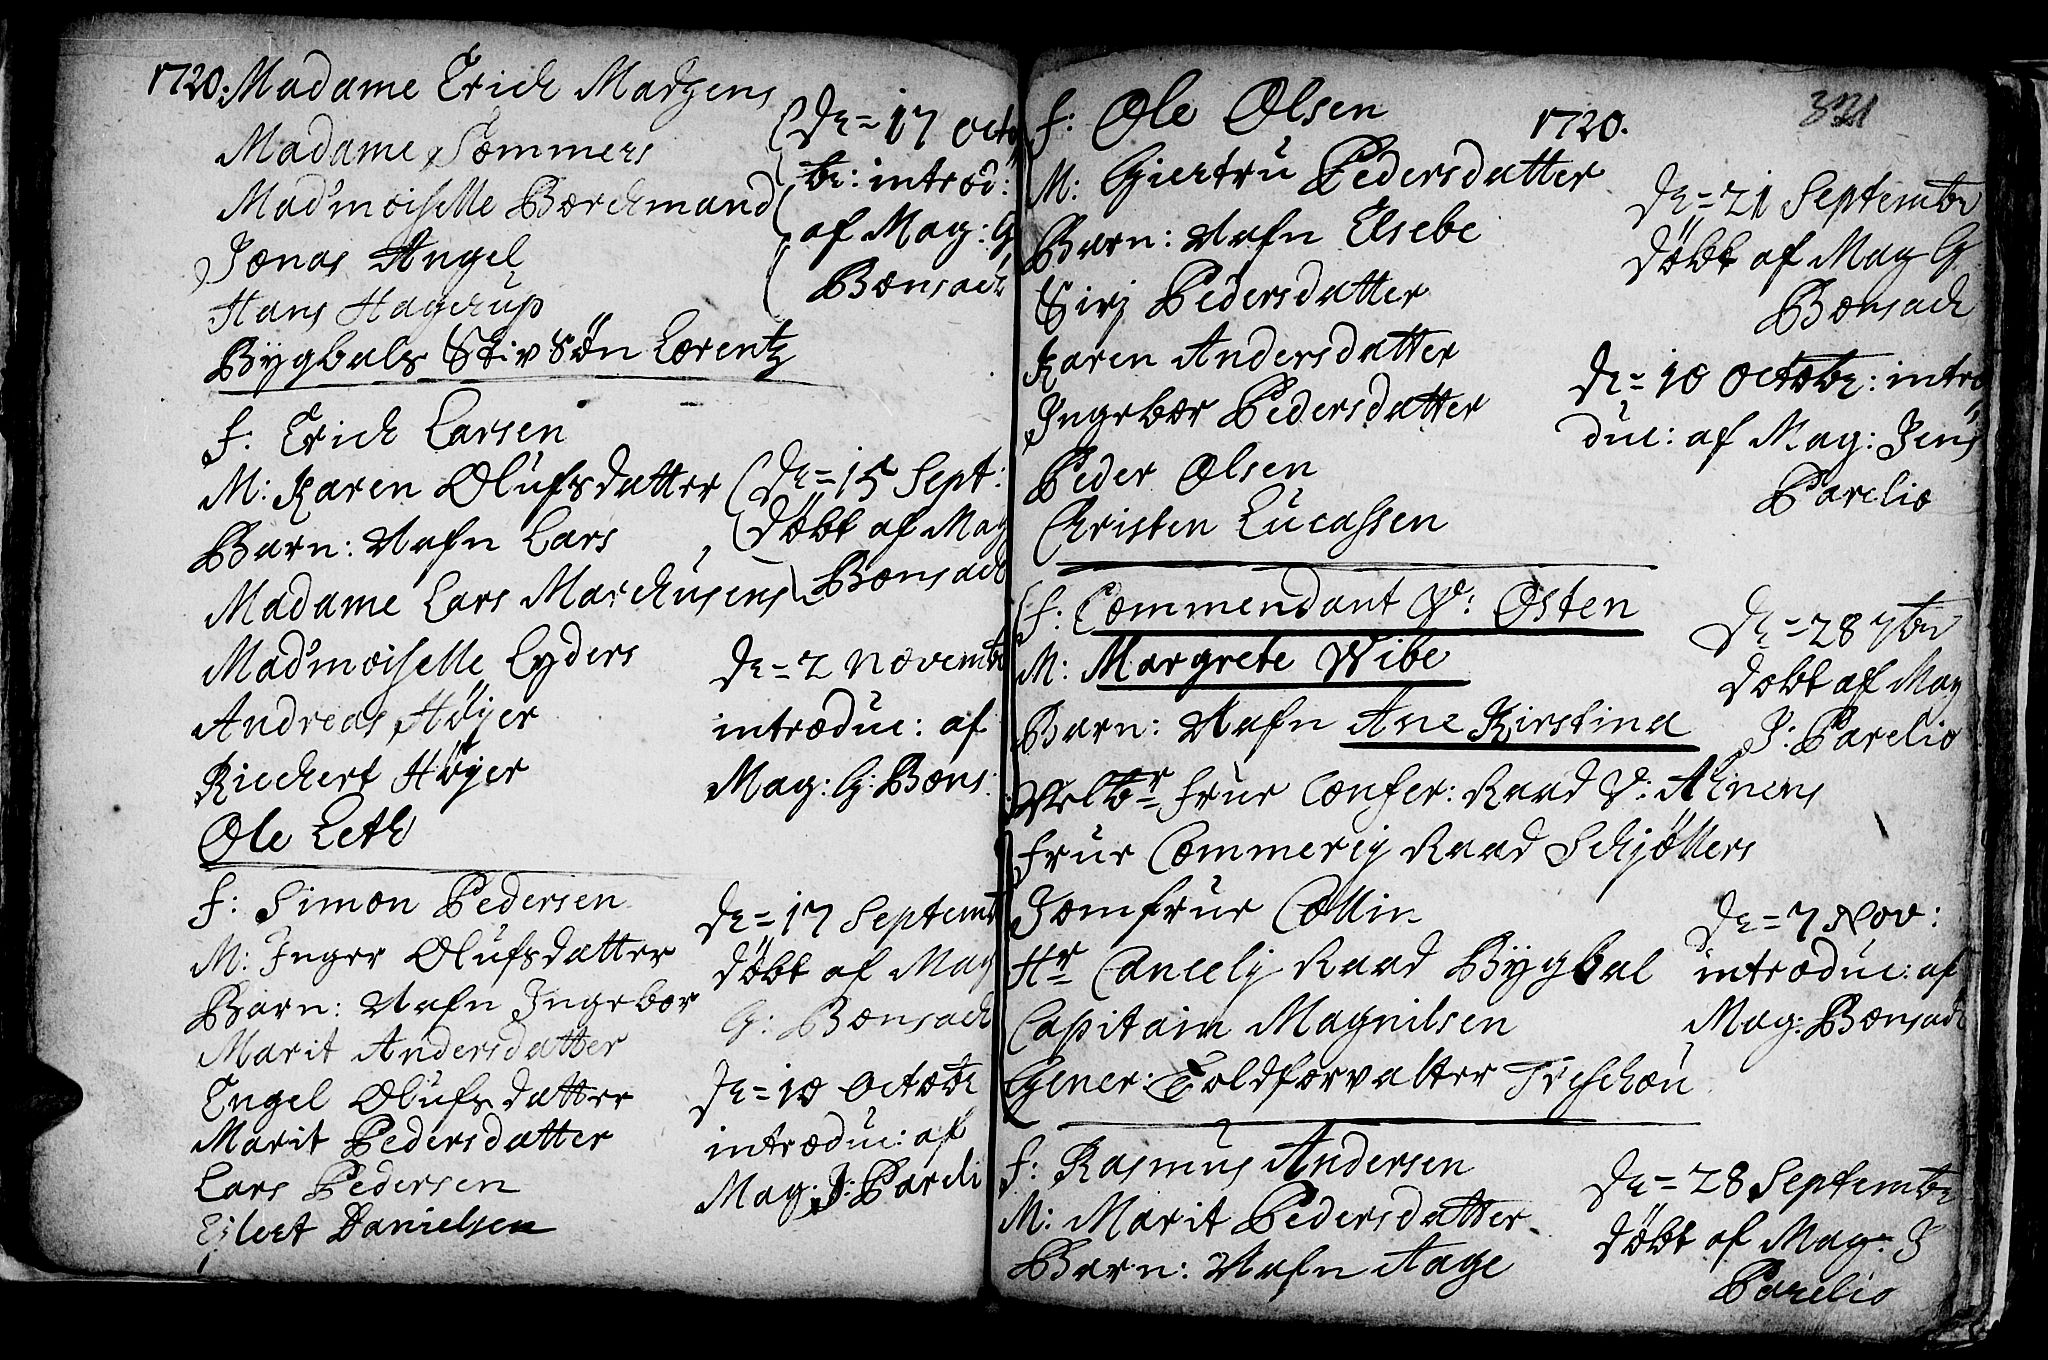 1720. Madame Erich Madzens
Madame Sommers
Mad'moiselle Borchmand
Jonas Angel
Hans Hagerup
Bygbals Stivsön Lorentz
De = 17 Octo
br: introd:
af Mag: G
Bonsach
F: Erich Larsen
M: Karen Olufsdatter
Barn: Nafn Lars
Madame Lars Marchusens
Mad'moiselle Lyders
Andreas Höyer
Riechert Höyer
Ole Leth
De = 15 Sept:
döbt af Mag
Bonsach
De = 2 Novemb
introduc: af
Mag: G: Bons:
F: Simon Pedersen
M: Inger Olufsdatter
Barn: Nafn Ingebor
Marit Andersdatter
Engel Olufsdatter
Marit Pedersdatter
Lars Pedersen
Eilert Danielsen
De = 17 Septemb
döbt af Mag
G: Bonsach
De = 10 Octobr
introduc: af
Mag: J: Pareli
1720.
321
F: Ole Olsen
M: Giertru Pedersdatter
Barn: Nafn Elsebe
Sirj Pedersdatter
Karen Andersdatter
Ingebor Pedersdatter
Peder Olsen
Christen Lucassen
De = 21 Septembr
döbt af Mag G
Bonsach
De = 10 Octobr: intro
duc: af Mag: Jens
Parelio
F: Commendant V: Osten
M: Margrete Wibe
Barn: Nafn Ane Kirstina
Velbr Frue Confer: Raad V: Ahnens
Frue Commerij Raad Schjöllers
Jomfrue Collin
Hr Cancelij Raad Bygbal
Capitain Magnilsen
Gener: Toldforvalter Treschou
De = 28 7br
dobt af Mag
J: Parelio
De = 7 Nov:
introduc: af
Mag: Bonsach
F: Rasmus Andersen
M: Marit Pedersdatter
Barn: Nafn Aage
De = 28 Septembr
döbt af Mag: J
Parelio